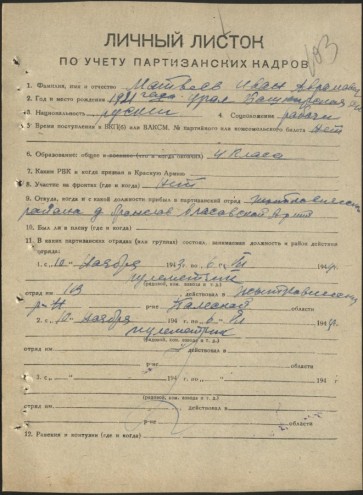 183
ЛИЧНЫЙ ЛИСТОК
ПО УЧЕТУ ПАРТИЗАНСКИХ КАДРОВ
1. Фамилия, имя и отчество Матвеев Иван
2. Год и место рождения 1921 года Урал
3. Национальность руский 4. Соцположение рабочи
5. Время поступления в ВКП(б) или ВЛКСМ, № партийного или комсомольского билета Нет
6. Образование: общее и военное (что и когда окончил) 4 класа
7. Каким РВК и когда призван в Красную Армию
8. Участие на фронтах (где и когда) Нит
9. Откуда, когда и с какой должности прибыл в партизанский отряд
района д.
10. Был ли в плену (где и когда)
11. В каких партизанских отрядах (или группах) состоял, занимаемая должность и район действия
(отряда):
1. с „10 ноября 1943 г. по „6“ VI 1944 г.
пулеметчик
(рядовой, ком. взвода и т. д.)
отряд им 103 действовал в
р-не Полеской области
2. с „10“ ноября 194 г. по „6“ VI 194 г.
пулеметчик
(рядовой, ком. взвода и т. д.)
отряд им действовал в
р-не области
3. с „ “ 194 г. по „ “ 194 г.
(рядовой, ком. взвода и т. д.)
отряд им действовал в
р-не области
12. Ранения и контузии (где и когда)